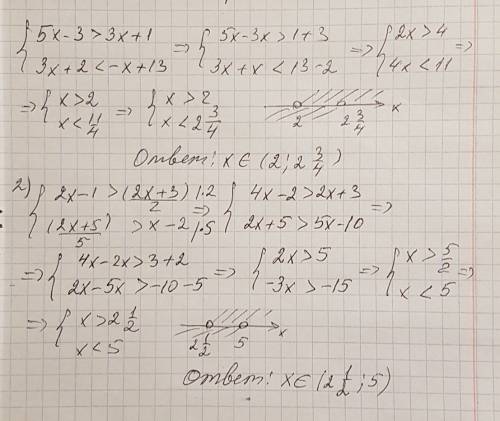 { 5x-3>3x+1 ; 3x+2<-x+13 => { 5x-3x>1+3 ; 3x+x<13-2 => { 2x>4 ; 4x<11 =>
=> { x>2 ; x<11/4 => { x>2 ; x<2 3/4   2   2 3/4   x
Ответ: x∈(2; 2 3/4)
2) { 2x-1>(2x+3)/2 |·2 ; (2x+5)/5 >x-2 |·5 => { 4x-2>2x+3 ; 2x+5>5x-10 =>
=> { 4x-2x>3+2 ; 2x-5x>-10-5 => { 2x>5 ; -3x>-15 => { x>5/2 ; x<5 =>
=> { x>2 1/2 ; x<5   2 1/2   5   x
Ответ: x∈(2 1/2; 5)